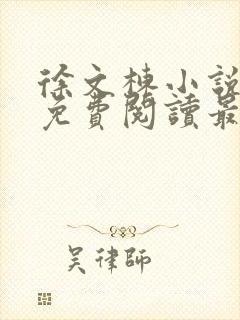 徐文棟小說
免費閱讀最
吴律師